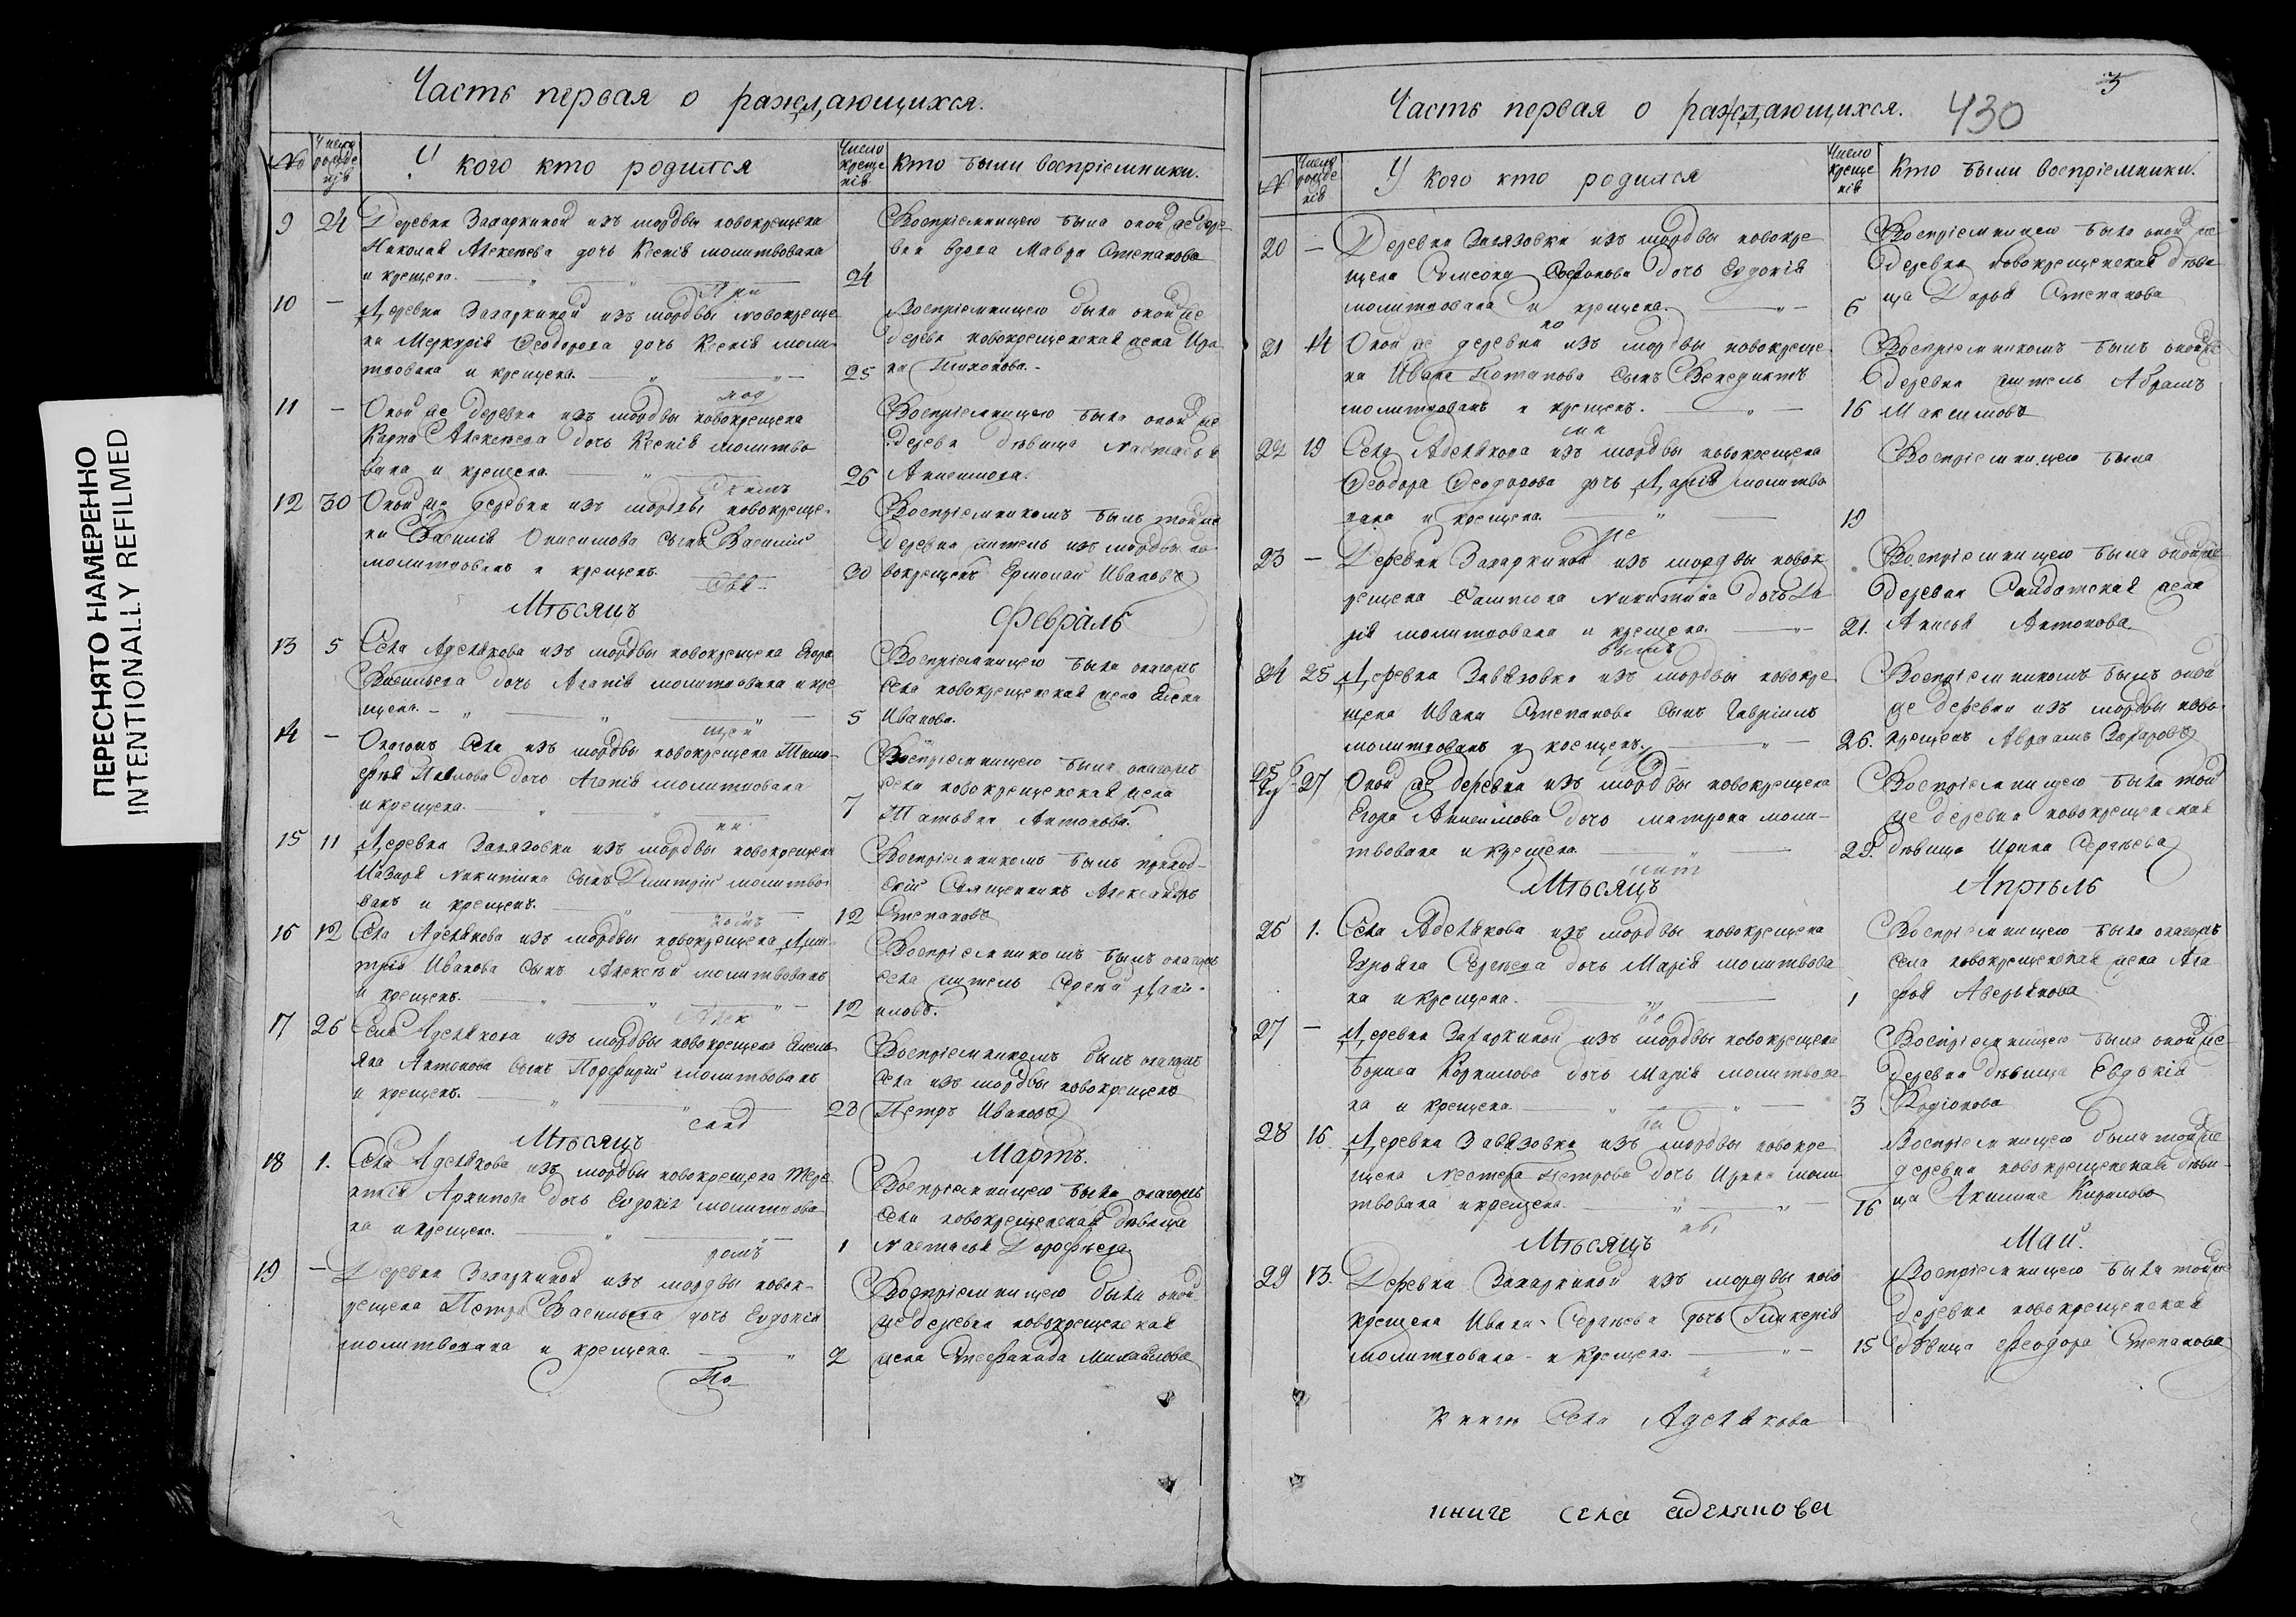 ПЕРЕСНЯТО НАМЕРЕННО
INTENTIONALLY REFILMED
Часть первая о раждающихся.
№
Число рожде нія
У кого кто родился
Число креще нія
Кто были воспріемники.
9 24 Деревни Захаркиной изъ мордвы новокрещена
Николая Алексеева дочь Ксенія молитвована
и крещена. 24
Воспріемницею была оной же дере
вни вдова Мавра Степанова
10 — Деревни Захаркиной изъ мордвы новокреще
на Меркурія Феодорова дочь Ксенія моли
твована и крещена. 25
Воспріемницею была оной же
деревни новокрещенская жена Ири
на Тихонова.
11 — Оной же деревни изъ мордвы новокрещена
Карпа Алексеева дочь Ксенія молитво
вана и крещена 26
Воспріемницею была оной же
деревни девица Настасья
Анисимова.
12 30 Оной же деревни изъ мордвы новокреще
на Василія Онисимова сынъ Василій
молитвованъ и крещенъ. 30
Воспріемникомъ былъ той же
деревни житель изъ мордвы но
вокрещенъ Ермолай Ивановъ
Мѣсяцъ Февраль
13 5 Села Аделякова изъ мордвы новокрещена Егора
Васильева дочь Агапія молитвована и кре
щена. 5
Воспріемницею была онагожъ
села новокрещенская жена Елена
Иванова.
14 — Онагожъ села изъ мордвы новокрещена Тимо
фея Павлова дочь Агапія молитвована
и крещена. 7
Воспріемницею была онагожъ
села новокрещенская жена
Татьяна Антонова.
15 11 Деревни Завязовки изъ мордвы новокрещена
Назара Никитина сынъ Дмитрій молитво
ванъ и крещенъ. 12
Воспріемникомъ былъ приход
скій Священникъ Александръ
Степановъ
16 12 Села Аделякова изъ мордвы новокрещена Дми
трія Иванова сынъ Алексѣй молитвованъ
и крещенъ. 12
Воспріемникомъ былъ онагожъ
села житель Сергей Дани
ловъ.
17 26 Села Аделякова изъ мордвы новокрещена Емель
яна Антонова сынъ Порфирій молитвованъ
и крещенъ. 28
Воспріемникомъ былъ онагожъ
села изъ мордвы новокрещенъ
Петръ Ивановъ
Мѣсяцъ Мартъ.
18 1. Села Аделякова изъ мордвы новокрещена Тере
нтія Архипова дочь Евдокія молитвова
на и крещена. 1
Воспріемницею была онагожъ
села новокрещенская дѣвица
Настасья Дорофѣева.
19 — Деревни Захаркиной изъ мордвы новок
рещена Петра Васильева дочь Евдокія
молитвована и крещена 2
Воспріемницею была оной
же деревни новокрещенская
жена Стефанида Михайлова
По
Часть первая о раждающихся.
430
3
№
Число рожде нія
У кого кто родился
Число креще нія
Кто были воспріемники.
20 — Деревни Завязовки изъ мордвы новокре
щена Симеона Софонова дочь Евдокія
молитвована и крещена. 6
Воспріемницею была оной же
деревни новокрещенская дѣви
ца Дарья Степанова
21 14 Оной же деревни изъ мордвы новокреще
на Ивана Потапова сынъ Венедиктъ
молитвованъ и крещенъ. 16
Воспріемникомъ былъ оной же
деревни житель Абрамъ
Максимовъ
22 19 Села Аделякова изъ мордвы новокрещена
Феодора Феодорова дочь Дарія молитво
вана и крещена. 19
Воспріемницею была
23 — Деревни Захаркиной изъ мордвы новок
рещена Никитина дочь Да
рія молитвована и крещена. 21.
Воспріемницею была оной же
деревни Солдатская жена
Анисья Антонова
24 25 Деревни Завязовки изъ мордвы новокре
щена Ивана Степанова сынъ Гавріилъ
молитвованъ и крещенъ. 26.
Воспріемникомъ былъ оной
же деревни изъ мордвы ново
крещенъ Авраамъ Захаровъ
25 27 Оной же деревни изъ мордвы новокрещена
Егора Анисимова дочь матрона моли
твована и крещена 29.
Воспріемницею была той
же деревни новокрещенская
дѣвица Ирина Сергѣева
Мѣсяцъ Апрѣль
26 1. Села Аделякова изъ мордвы новокрещена
Сергеева дочь Марія молитвова
на и крещена. 1
Воспріемницею была онагожъ
села новокрещенская жена Ага
фья Аверьянова
27 — Деревни Захаркиной изъ мордвы новокрещена
Бориса Корнилова дочь Марія молитвова
на и крещена 3
Воспріемницею была оной же
деревни дѣвица Евдокія
Родіонова
28 16 Деревни Завязовки изъ мордвы новокре
щена Нестера Петрова дочь Ирина моли
твована и крещена. 16
Воспріемницею была той же
деревни новокрещенская дѣви
ца Акилина Кирилова
Мѣсяцъ Май.
29 13. Деревни Захаркиной изъ мордвы ново
крещена Ивана Сергѣева дочь Гликерія
молитвована и крещена. 15
Воспріемницею была той же
деревни новокрещенская
дѣвица Феодора Степанова
книги Села Аделякова
книге села аделякова